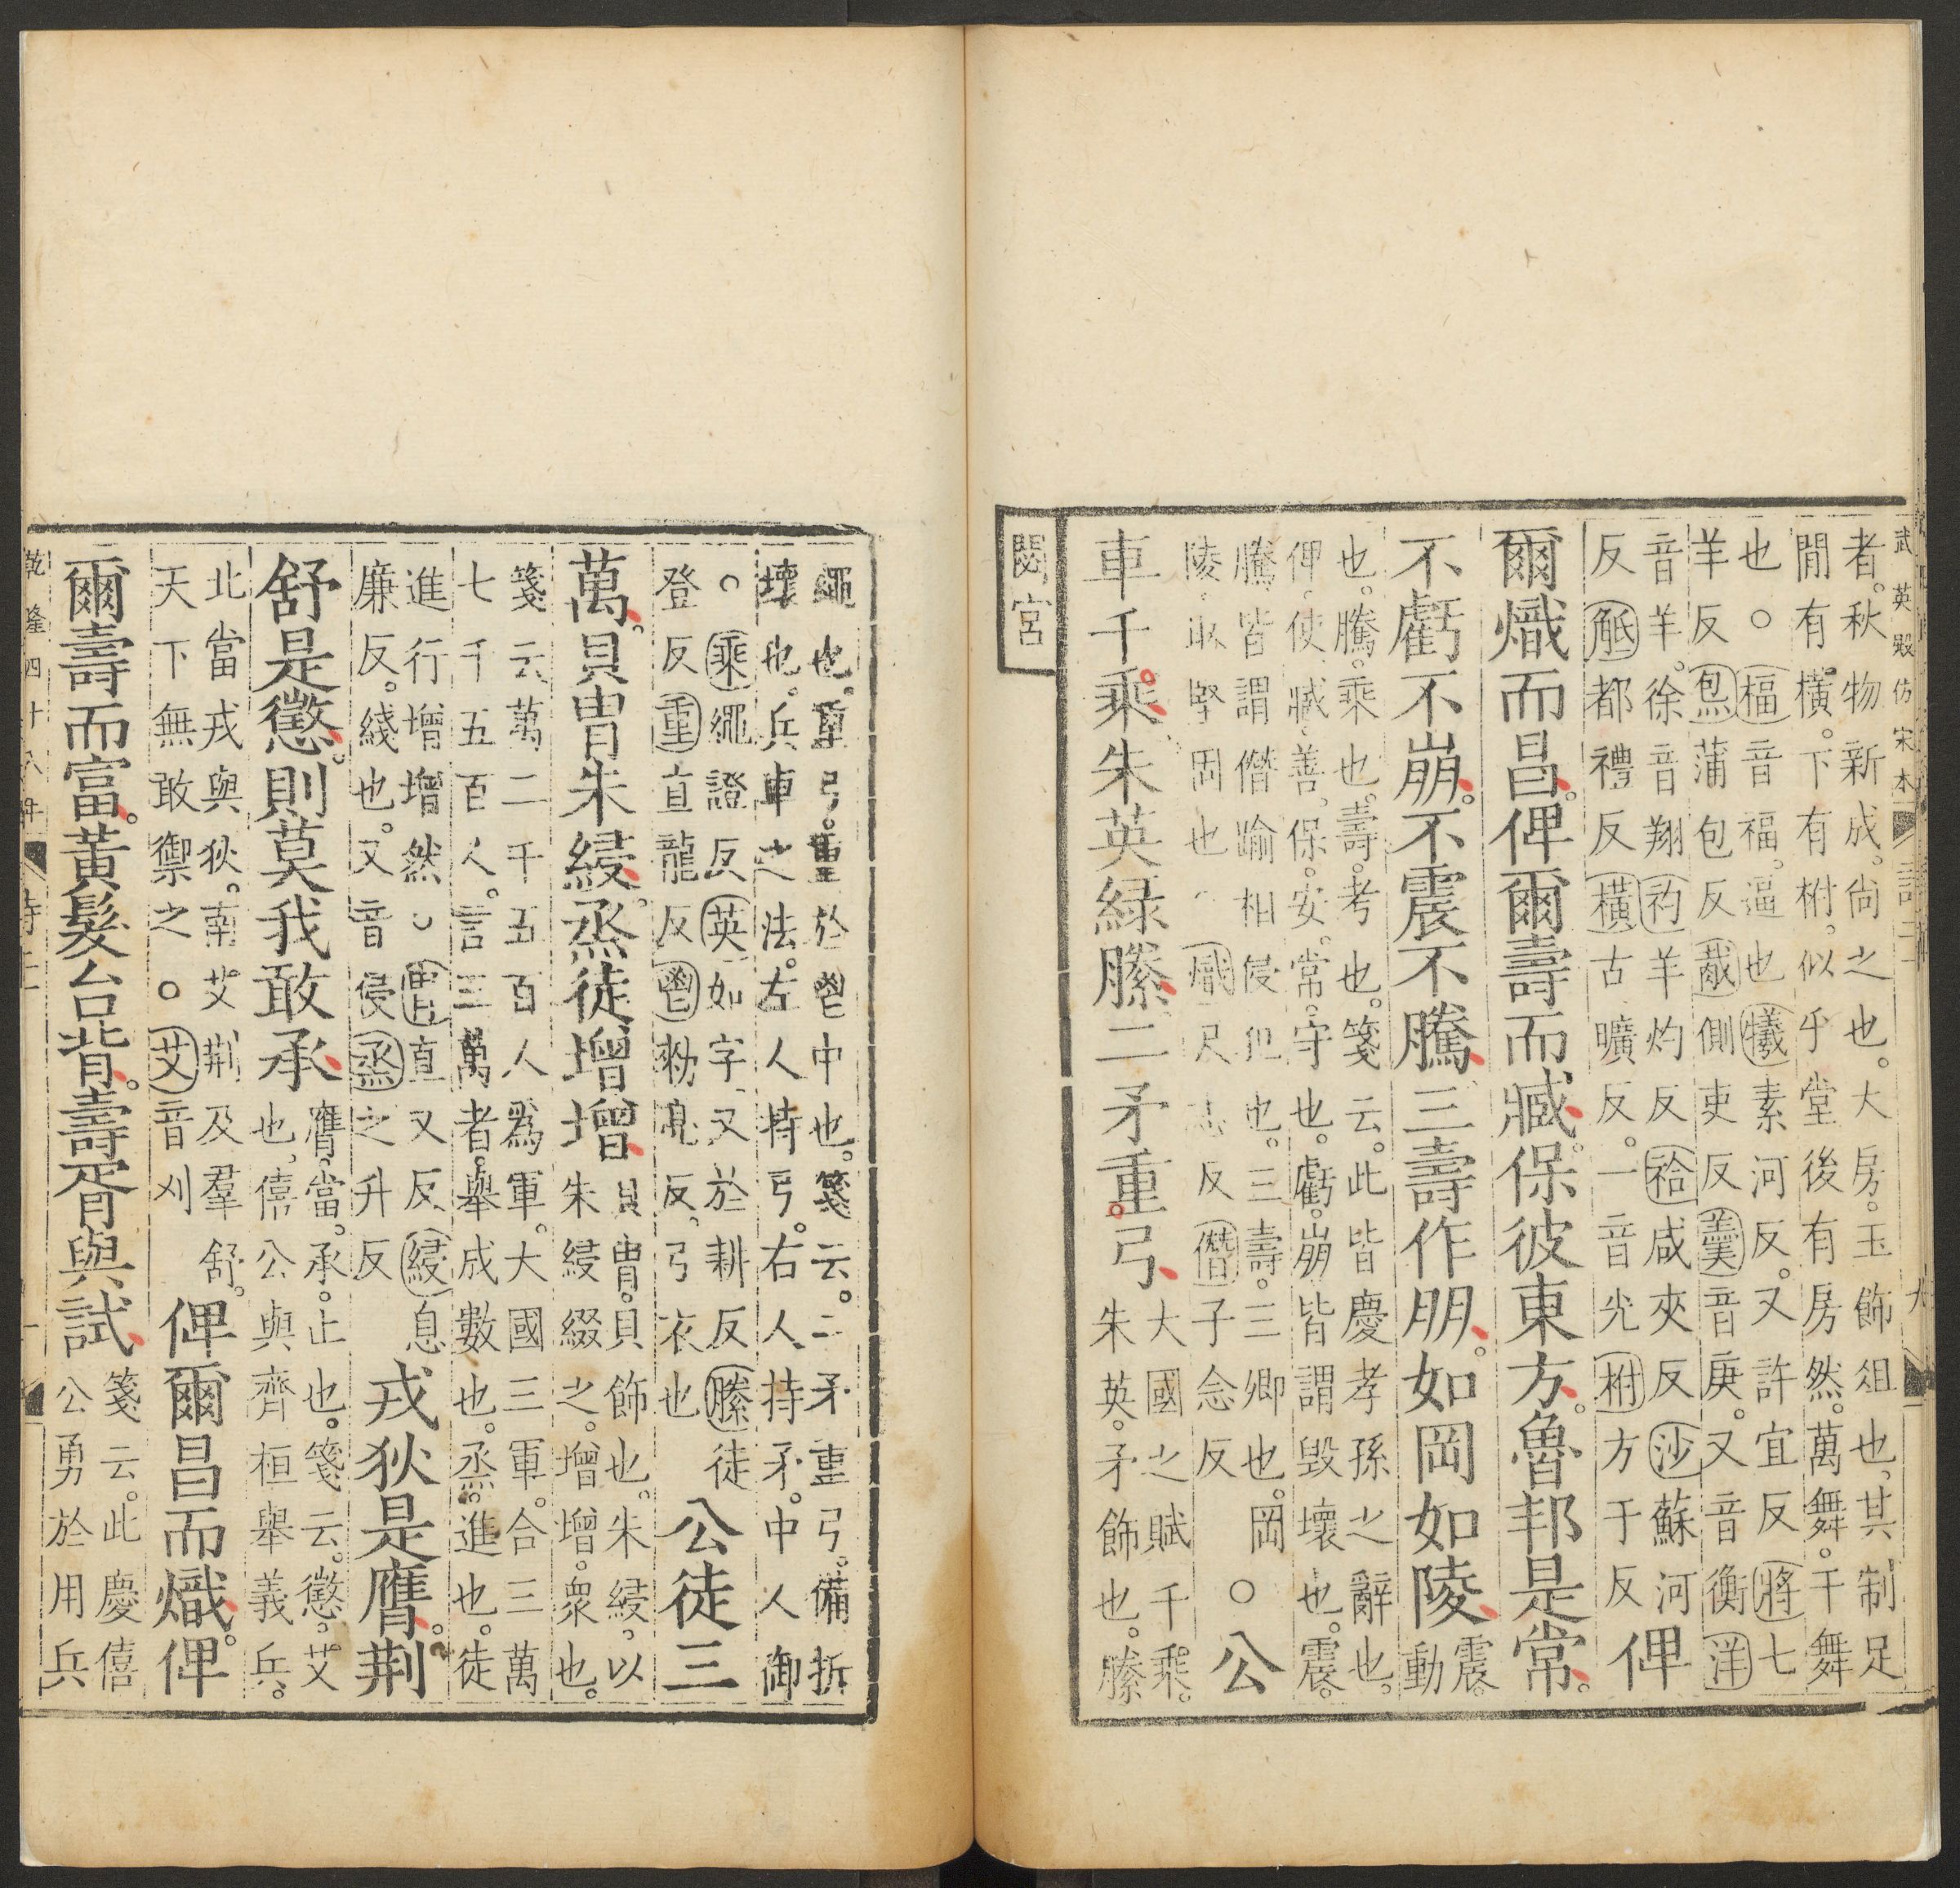 武英殿仿宋本
者。秋物新成、尙之也。大房。玉飾俎也、其制足
閒有橫。下有柎、似乎堂後有房然。萬舞。干舞
也○楅音福、逼也犧素河反。又許宜反將七
羊反炰蒲包反胾側吏反羹音庚。又音衡洋
音羊。徐音翔礿羊灼反祫咸夾反沙蘇河
反觝都禮反橫古曠反。一音光柎方于反
俾
爾熾而昌。俾爾壽而臧。保彼東方。魯邦是常。
不虧不崩。不震不騰。三壽作朋。如岡如陵。
震。
動
也。騰。乘也。壽。考也。箋云。此皆慶孝孫之辭也。
俾、使、臧、善、保。安。常。守也。虧。崩皆謂毀壞也。震。
騰、皆謂僭踰相侵犯也。三壽。三卿也。岡
陵、取堅固也○熾尺志反僭子念反
○公
車千乘朱英綠縢二矛重弓
大國之賦千乘。
朱英。矛飾也。縢
閟宮
繩也。重弓。重於鬯中也。箋云。二矛重弓。備折
壞也。兵車之法。左人持弓。右人持矛。中人御
○乘繩證反英如字、又於耕反縢徒
登反重直龍反鬯勑亮反、弓衣也
公徒三
萬。貝冑朱綅。烝徒增增
貝冑。貝飾也。朱綅、以
朱綅綴之。增增。衆也。
箋云萬二千五百人爲軍。大國三軍。合三萬
七千五百人。言三萬者。舉成數也。烝。進也。徒
進行增增然○冑直又反綅息
廉反。綫也。又音侵烝之升反
戎狄是膺。荆
舒是懲。則莫我敢承
膺、當。承。止也。箋云。懲。艾
也、僖公與齊桓舉義兵。
北當戎與狄。南艾荆及羣舒。
天下無敢禦之○艾音刈
俾爾昌而熾。俾
爾壽而富。黃髮台背。壽胥與試
箋云。此慶僖
公勇於用兵
乾隆四十八年